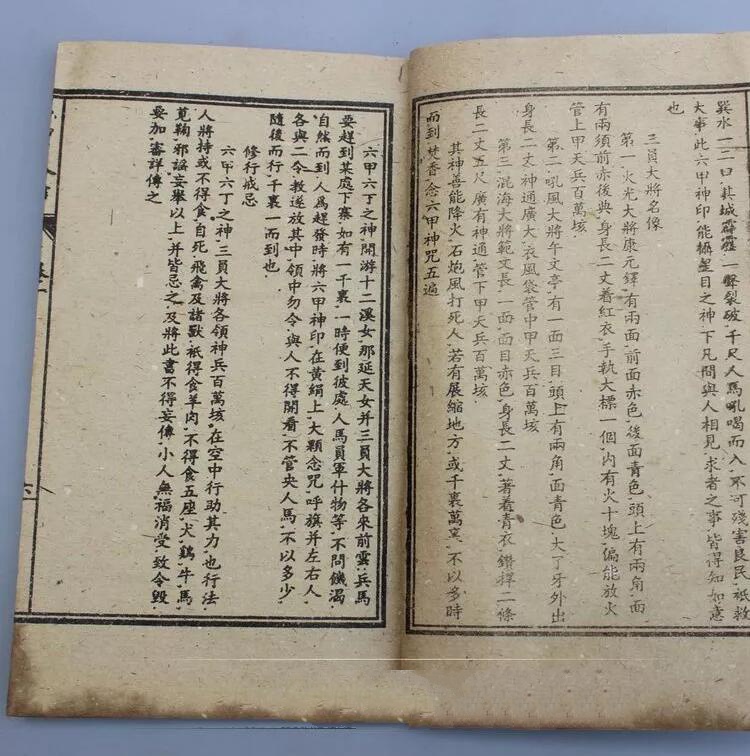 巽水一二口其城霹靂一聲裂破千尺人馬吼喝而入不可殘害良民祇救
大事此六甲神印能攝星目之神下凡間與人相見求者之事皆得知如意
也
三員大將名像
第一火光大將康元鐸有兩面前面赤色後面青色頭上有兩角面
有兩須前赤後典身長二丈着紅衣手執大標一個內有火十塊偏能放火
管上甲天兵百萬垓
第二吼風大將午文亭有一面三目頭上有兩角面青色大丁牙外出
身長二丈神通廣大衣風袋管中甲天兵百萬垓
第三混海大將範文長一面面目赤色身長二丈著着青衣鑽擇二條
長二丈五尺廣有神通管下甲天兵百萬垓
其神善能降火石炮風打死人若有展縮地方或千裏萬窯不以多時
而到焚香念六甲神咒五遍
六甲六丁之神開游十二溪女那延天女并三員大將各來前雲兵馬
要趕到某處下寨如有一千裏一時便到彼處人馬員軍什物等不問饑渴
自然而到人爲趕發時將六甲神印在黃絹上大顆念咒呼旗并左右人
各與二令教遂放其中領中勿令與人不得開看不管央人馬不以多少
隨後而行千裏一而到也
修行戒忌
六甲六丁之神三員大將各領神兵百萬垓在空中行助其力也行法
人將持或不得食自死飛禽及諸獸祇得食羊肉不得食五座犬鷄牛馬
莧鞠邪謡妄舉以上并皆忌之及將此書不得妄傳小人無福消受致令毀
要加審詳傳之